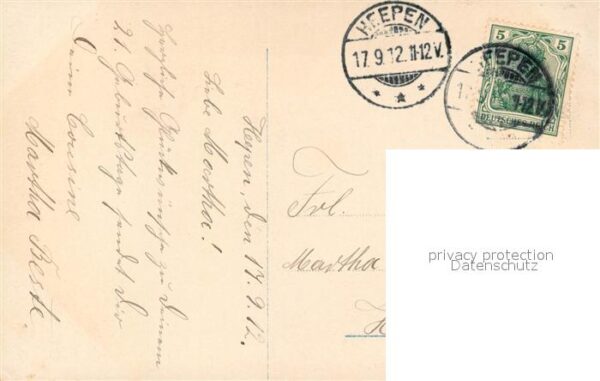 HEEPEN
17.9.12.11-12V.
5 5
HEEPEN
DEUTSCHES REICH
Hepen, den 17.9.12.
Liebe Martha!
Herzliche Glückwünsche zu Deinem
21. Geburtstage sendet Dir
Deine Cousine
Martha Beste.
Frl.
Martha
H
privacy protection
Datenschutz